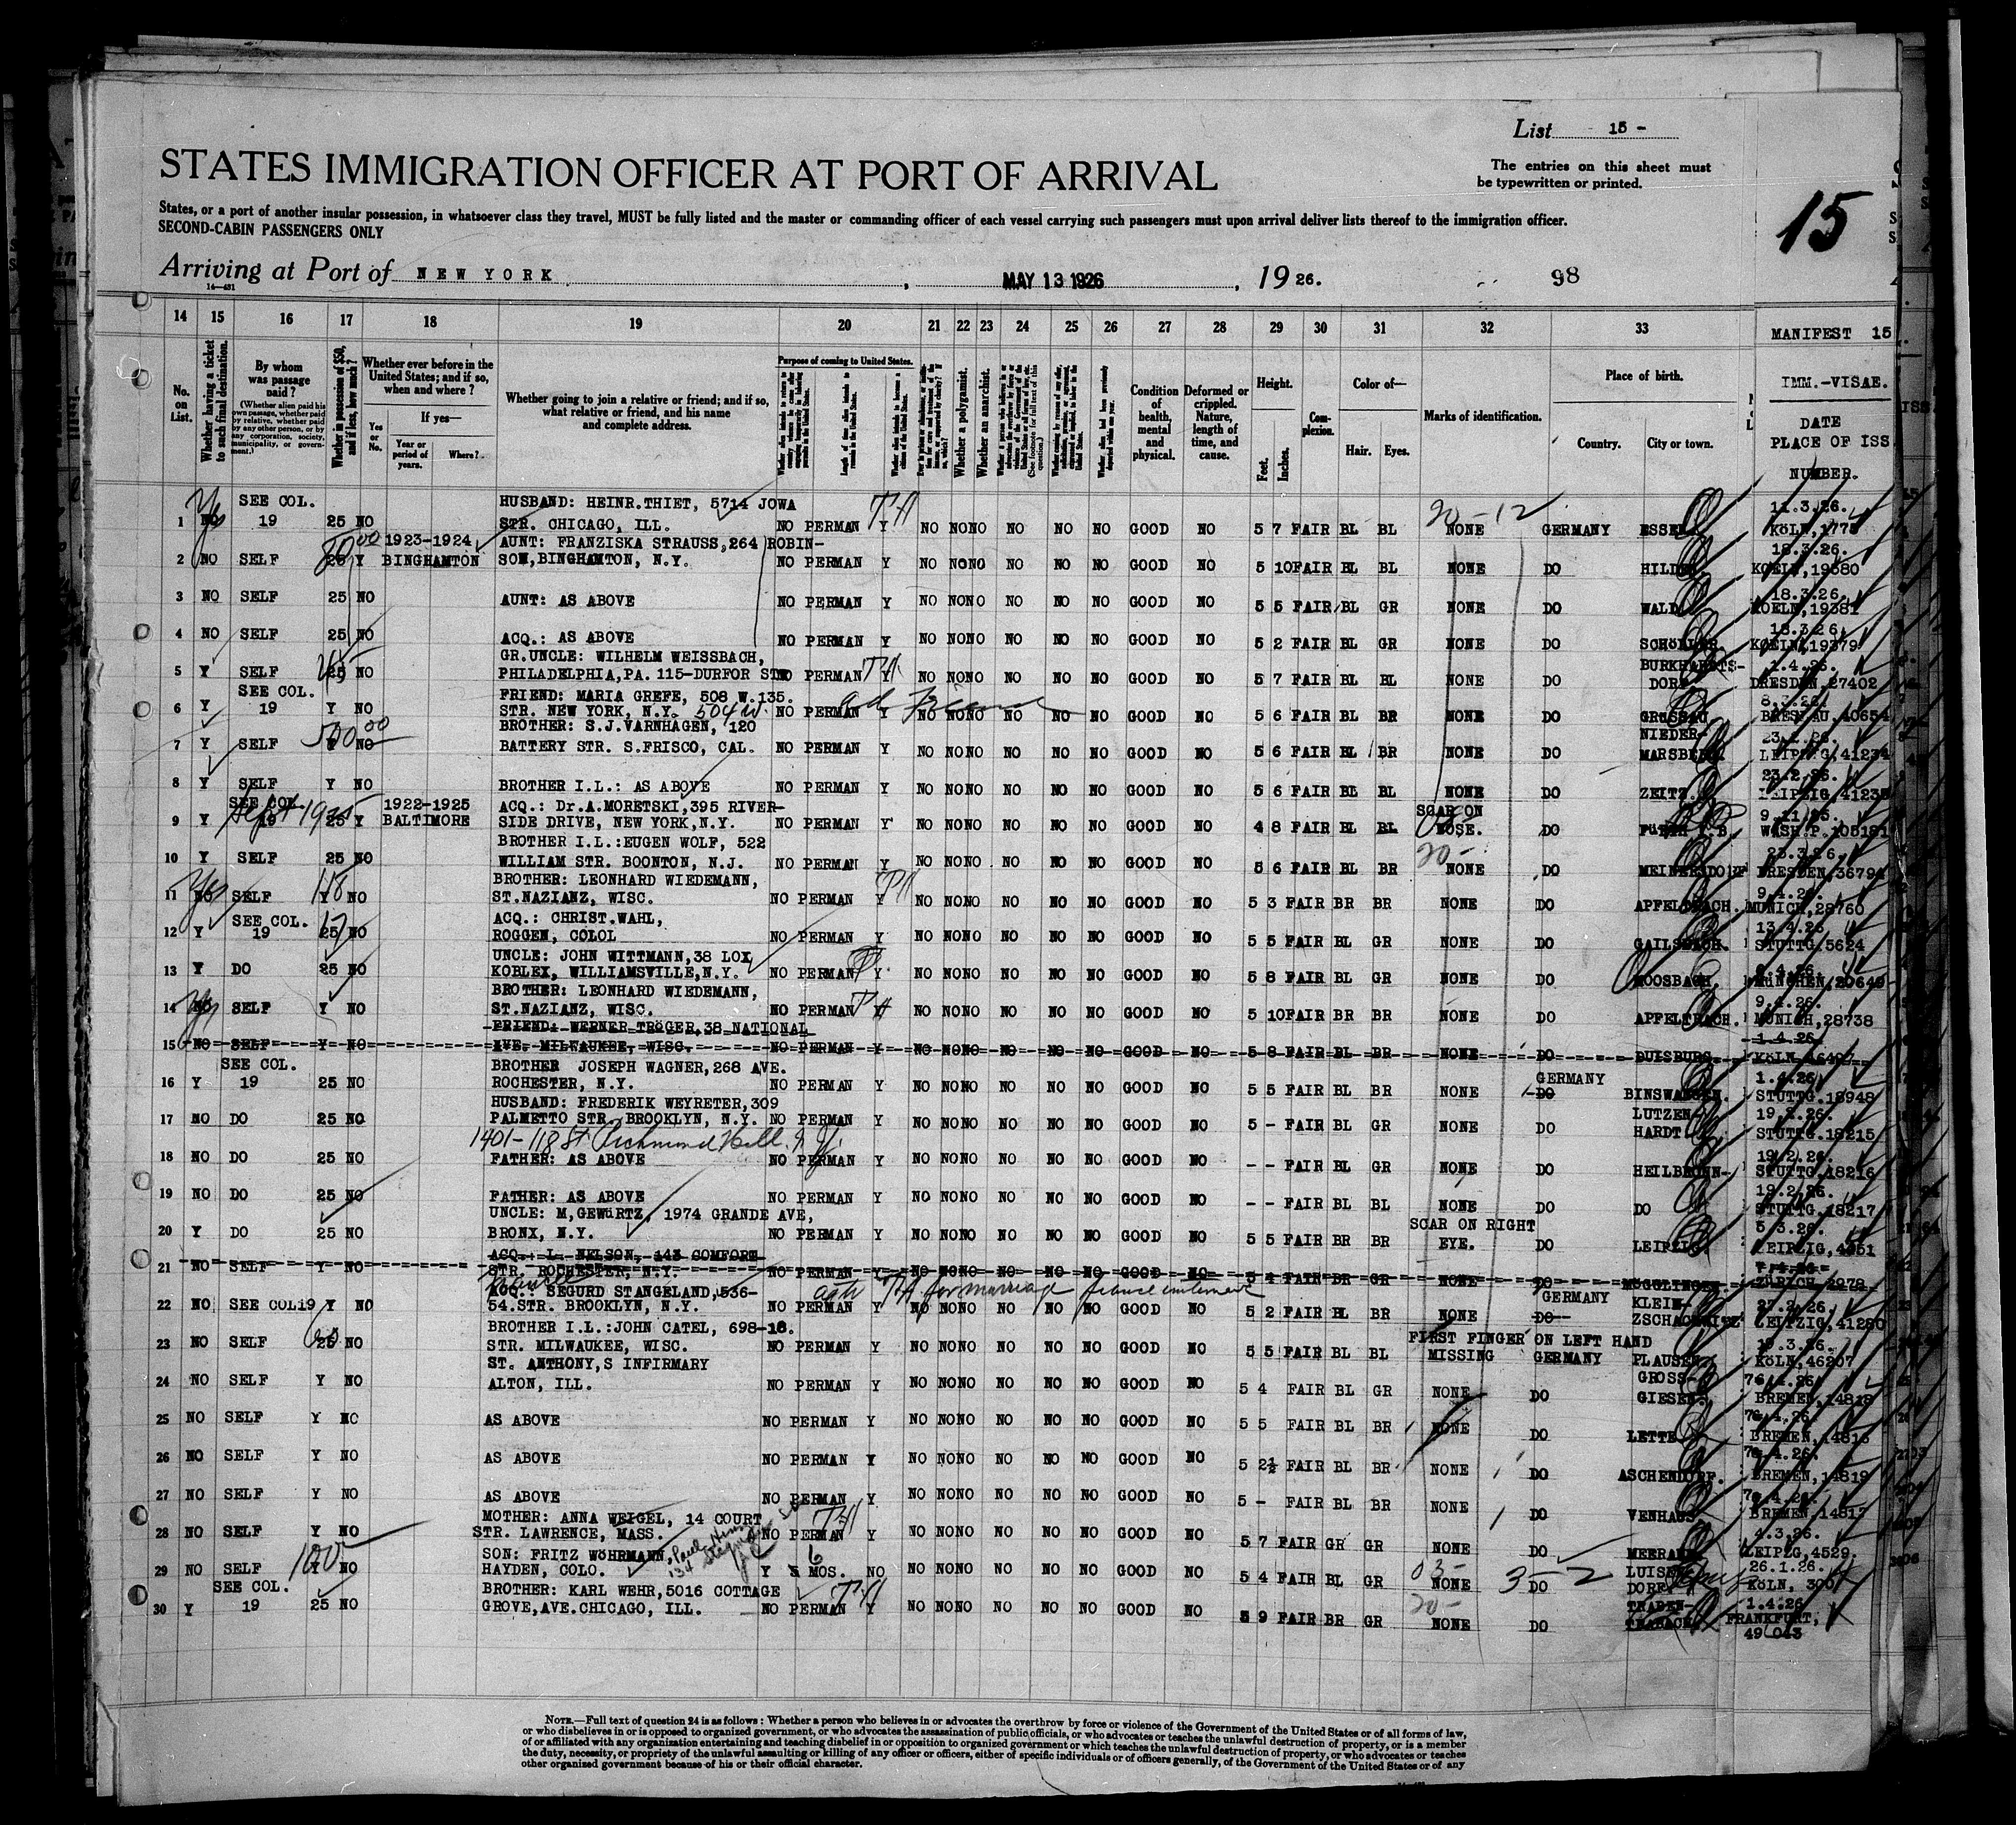 List 15 -
STATES IMMIGRATION OFFICER AT PORT OF ARRIVAL
The entries on this sheet must
be typewritten or printed.
15
States, or a port of another insular possession, in whatsoever class they travel, MUST be fully listed and the master or commanding officer of each vessel carrying such passengers must upon arrival deliver lists thereof to the immigration officer.
SECOND-CABIN PASSENGERS ONLY
Arriving at Port of NEW YORK, MAY 13 1926, 1926. 98
14—431
14 15 16 17 18 19 20 21 22 23 24 25 26 27 28 29 30 31 32 33
MANIFEST 15
No. on List.
Whether having a ticket to such final destination.
By whom was passage paid?
(Whether alien paid his own passage, whether paid by relative, whether paid by any other person, or by any corporation, society, municipality, or government.)
Whether in possession of $50, and if less, how much?
Whether ever before in the United States; and if so, when and where?
Yes or No.
If yes—
Year or period of years.
Where?
Whether going to join a relative or friend; and if so, what relative or friend, and his name and complete address.
Purpose of coming to United States.
Length of time alien intends to remain in the United States.
Whether a polygamist.
Whether an anarchist.
Condition of health, mental and physical.
Deformed or crippled. Nature, length of time, and cause.
Height.
Feet.
Inches.
Complexion.
Color of—
Hair. Eyes.
Marks of identification.
Place of birth.
Country. City or town.
IMM.-VISAE.
DATE
PLACE OF ISS
NUMBER.
SEE COL. HUSBAND: HEINR.THIET, 5714 JOWA 11.3.26.
1 NO Yes 19 25 NO STR. CHICAGO, ILL. NO PERMAN Y NO NONO NO NO NO GOOD NO 5 7 FAIR BL BL NONE GERMANY ESSEN KÖLN,1775
20-12
1923-1924 AUNT: FRANZISKA STRAUSS,264 ROBIN- 18.3.26.
2 NO SELF 25 Y BINGHAMTON SON,BINGHAMTON, N.Y. NO PERMAN Y NO NONO NO NO NO GOOD NO 5 10 FAIR BL BL NONE DO HILDEN KOELN,19380
18.3.26.
3 NO SELF 25 NO AUNT: AS ABOVE NO PERMAN Y NO NONO NO NO NO GOOD NO 5 5 FAIR BL GR NONE DO WALD KOELN,19381
18.3.26.
4 NO SELF 25 NO ACQ.: AS ABOVE NO PERMAN Y NO NONO NO NO NO GOOD NO 5 2 FAIR BL GR NONE DO SCHÖLLER. KOELN,19379
GR.UNCLE: WILHELM WEISSBACH, BURKHARDTS- 1.4.26.
5 Y SELF 25 NO PHILADELPHIA,PA. 115-DURFOR STR NO PERMAN Y NO NONO NO NO NO GOOD NO 5 7 FAIR BL BL NONE DO DORF DRESDEN,27402
SEE COL. FRIEND: MARIA GREFE, 508 W.135. 8.3.26.
6 Y 19 Y NO STR. NEW YORK, N.Y. 504 W. NO PERMAN Y NO NONO NO NO NO GOOD NO 5 6 FAIR BL BR NONE DO GRÜSSAU BRESLAU,40654
500.00
BROTHER: S.J.VARNHAGEN, 120 NIEDER-
7 Y SELF Y NO BATTERY STR. S.FRISCO, CAL. NO PERMAN Y NO NONO NO NO NO GOOD NO 5 6 FAIR BL BR NONE DO MARSBERG LEIPZIG,41234
23.2.26.
8 Y SELF Y NO BROTHER I.L.: AS ABOVE NO PERMAN Y NO NONO NO NO NO GOOD NO 5 6 FAIR BL BL NONE DO ZEITZ. LEIPZIG,41235
SEE COL. Sept 1925 1922-1925 ACQ.: Dr.A.MORETSKI,395 RIVER- SCAR ON 9.11.25.
9 Y 19 25 Y BALTIMORE SIDE DRIVE, NEW YORK,N.Y. NO PERMAN Y NO NONO NO NO NO GOOD NO 4 8 FAIR BL BL NOSE. DO FÜRTH I.B. WASH.P.105181
BROTHER I.L.:EUGEN WOLF, 522 20- 25.3.26.
10 Y SELF 25 NO WILLIAM STR. BOONTON, N.J. NO PERMAN Y NO NONO NO NO NO GOOD NO 5 6 FAIR BL BR NONE DO MEINERSDORF DRESDEN,36794
BROTHER: LEONHARD WIEDEMANN, 9.4.26.
11 NO Yes SELF Y NO ST.NAZIANZ, WISC. NO PERMAN Y NO NONO NO NO NO GOOD NO 5 3 FAIR BR BR NONE DO APFELTRACH. MUNICH,28760
SEE COL. ACQ.: CHRIST.WAHL, 13.4.26.
12 Y 19 25 NO ROGGEN, COLOL NO PERMAN Y NO NONO NO NO NO GOOD NO 5 5 FAIR BL GR NONE DO GAILSBACH. STUTTG.5624
UNCLE: JOHN WITTMANN,38 LOX
13 Y DO 25 NO KOBLEX, WILLIAMSVILLE,N.Y. NO PERMAN Y NO NONO NO NO NO GOOD NO 5 8 FAIR BL GR NONE DO MOOSBACH, MÜNCHEN,20649
BROTHER: LEONHARD WIEDEMANN, 9.4.26.
14 NO Yes SELF Y NO ST.NAZIANZ, WISC. NO PERMAN Y NO NONO NO NO NO GOOD NO 5 10 FAIR BR BR NONE DO APFELTRACH. MUNICH,28738
FRIEND: WERNER TRÖGER,38 NATIONAL 1.4.26.
15 NO SELF Y NO AVE. MILWAUKEE, WISC. NO PERMAN Y NO NONO NO NO NO GOOD NO 5 8 FAIR BL BR NONE DO DUISBURG KÖLN,46407
SEE COL. BROTHER JOSEPH WAGNER,268 AVE. GERMANY 1.4.26.
16 Y 19 25 NO ROCHESTER, N.Y. NO PERMAN Y NO NONO NO NO NO GOOD NO 5 5 FAIR BL BR NONE DO BINSWANGEN. STUTTG.18948
HUSBAND: FREDERIK WEYRETER,309 LUTZEN- 19.2.26.
17 NO DO 25 NO PALMETTO STR. BROOKLYN, N.Y. NO PERMAN Y NO NONO NO NO NO GOOD NO 5 - FAIR BL GR NONE DO HARDT STUTTG.18215
1401-118 St. Richmond Hill, N.Y.
19.2.26.
18 NO DO 25 NO FATHER: AS ABOVE NO PERMAN Y NO NONO NO NO NO GOOD NO - - FAIR BL GR NONE DO HEILBRONN- STUTTG.18216
19.2.26.
19 NO DO 25 NO FATHER: AS ABOVE NO PERMAN Y NO NONO NO NO NO GOOD NO - - FAIR BL BL NONE DO DO STUTTG.18217
UNCLE: M,GEWÜRTZ, 1974 GRANDE AVE, SCAR ON RIGHT 5.3.26.
20 Y DO 25 NO BRONX, N.Y. NO PERMAN Y NO NONO NO NO NO GOOD NO 5 5 FAIR BR BR EYE. DO LEIPZIG. LEIPZIG,4351
ACQ.: L. NELSON, 143 COMFORT
21 NO SELF Y NO STR. ROCHESTER, N.Y. NO PERMAN Y NO NONO NO NO NO GOOD NO 5 4 FAIR BR GR NONE DO MÖGGLINGEN ZÜRICH,2978
ACQ.: SEGURD STANGELAND,536- for marriage GERMANY KLEIN- 27.2.26.
22 NO SEE COL19 Y NO 54.STR. BROOKLYN, N.Y. NO PERMAN Y NO NONO NO NO NO GOOD NO 5 2 FAIR BL BR NONE DO ZSCHACHWITZ LEIPZIG,41280
BROTHER I.L.:JOHN CATEL, 698-16. FIRST FINGER ON LEFT HAND
23 NO SELF 25 NO STR. MILWAUKEE, WISC. NO PERMAN Y NO NONO NO NO NO GOOD NO 5 5 FAIR BL BL MISSING GERMANY PLAUSEN. KÖLN,46207
ST. ANTHONY,S INFIRMARY GROSS-
24 NO SELF Y NO ALTON, ILL. NO PERMAN Y NO NONO NO NO NO GOOD NO 5 4 FAIR BL GR NONE DO GIESEN. BREMEN,14818
25 NO SELF Y NO AS ABOVE NO PERMAN Y NO NONO NO NO NO GOOD NO 5 5 FAIR BL BR NONE DO LETTE BREMEN,14816
26 NO SELF Y NO AS ABOVE NO PERMAN Y NO NONO NO NO NO GOOD NO 5 2½ FAIR BL BR NONE DO ASCHENDORF. BREMEN,14819
27 NO SELF Y NO AS ABOVE NO PERMAN Y NO NONO NO NO NO GOOD NO 5 - FAIR BL BR NONE DO VENHAUS BREMEN,14817
MOTHER: ANNA WEIGEL, 14 COURT 4.3.26.
28 NO SELF Y NO STR. LAWRENCE, MASS. NO PERMAN Y NO NONO NO NO NO GOOD NO 5 7 FAIR GR GR NONE DO MEERANE LEIPZG,4529.
SON: FRITZ WÖHRMANN, 6 03- 3-2 LUISEN 26.1.26.
29 NO SELF 100 Y NO HAYDEN, COLO. Y MOS. NO NO NONO NO NO NO GOOD NO 5 4 FAIR BL GR NONE DO DORF KÖLN, 300
SEE COL. BROTHER: KARL WEHR,5016 COTTAGE 20- TRABEN- 1.4.26
30 Y 19 25 NO GROVE,AVE.CHICAGO, ILL. NO PERMAN Y NO NONO NO NO NO GOOD NO 5 9 FAIR BR GR NONE DO TRABACH FRANKFURT,
49 043
NOTE.—Full text of question 24 is as follows: Whether a person who believes in or advocates the overthrow by force or violence of the Government of the United States or of all forms of law,
or who disbelieves in or is opposed to organized government, or who advocates the assassination of public officials, or who advocates or teaches the unlawful destruction of property, or is a member
of or affiliated with any organization entertaining and teaching disbelief in or opposition to organized government or which teaches the unlawful destruction of property, or who advocates or teaches
the duty, necessity, or propriety of the unlawful assaulting or killing of any officer or officers, either of specific individuals or of officers generally, of the Government of the United States or of any
other organized government because of his or their official character.